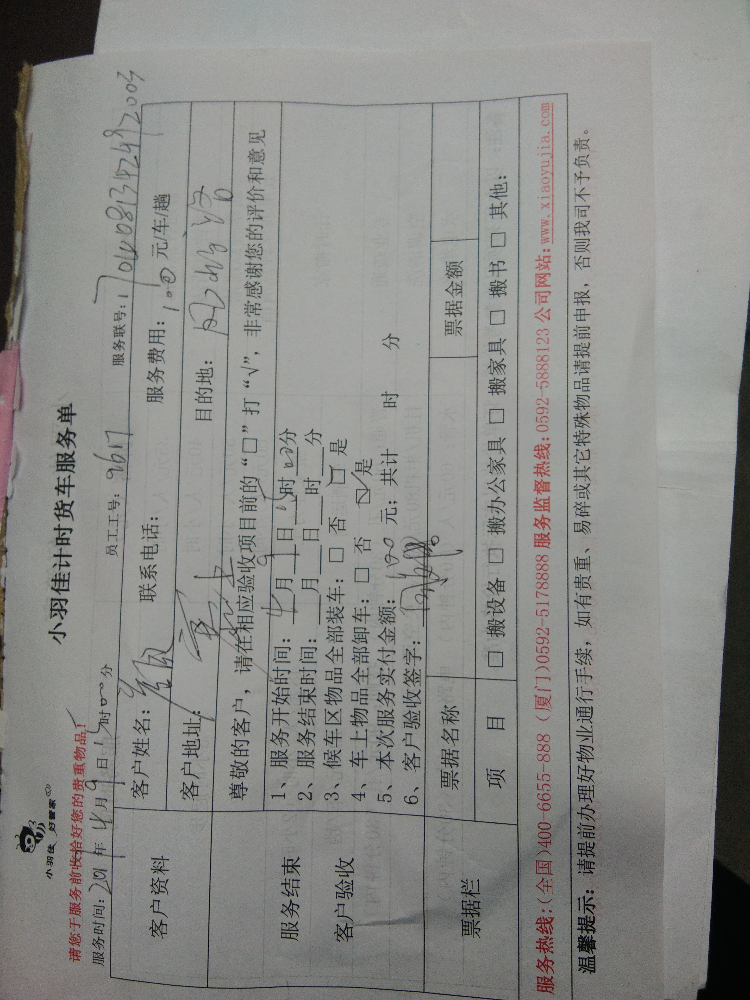 小羽佳 好管家
小羽佳计时货车服务单
请您于服务前收拾好您的贵重物品!
服务时间: 年 4月 9日 时00分 员工工号: 9617 服务联号:
客户资料
客户姓名: 联系电话: 服务费用: 元/车/趟
客户地址: 目的地:
尊敬的客户,请在相应验收项目前的“□”打“√”,非常感谢您的评价和意见
服务结束
客户验收
1、服务开始时间: 4月 日 时00分
2、服务结束时间:___月___日___时___分
3、候车区物品全部装车:□ 否 □ 是
4、车上物品全部卸车:□ 否 ☑是
5、本次服务实付金额: 元;共计 时 分
6、客户验收签字:
票据栏
票据名称 票据金额
项 目 □ 搬设备 □ 搬办公家具 □ 搬家具 □ 搬书 □ 其他:
服务热线:(全国)400-6655-888 (厦门)0592-5178888 服务监督热线:0592-5888123 公司网站:www.xiaoyujia.com
温馨提示:请提前办理好物业通行手续,如有贵重、易碎或其它特殊物品请提前申报,否则我司不予负责。